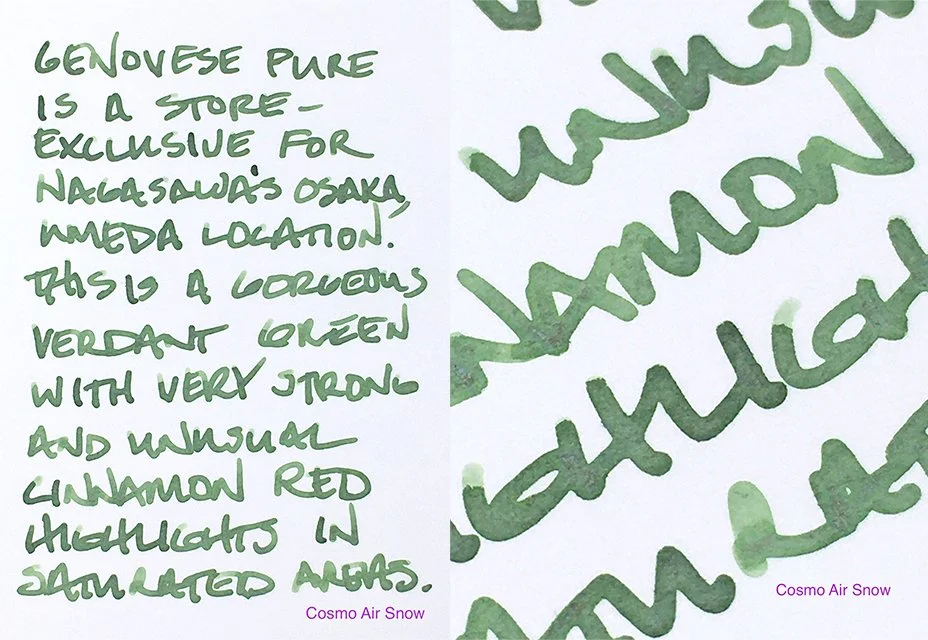 GENOVESE PURE
IS A STORE-
EXCLUSIVE FOR
NAGASAWA'S OSAKA,
UMEDA LOCATION.
THIS IS A GORGEOUS
VERDANT GREEN
WITH VERY STRONG
AND UNUSUAL
CINNAMON RED
HIGHLIGHTS IN
SATURATED AREAS.
Cosmo Air Snow
UNUSU
NAMON
GHLIGH
Cosmo Air Snow